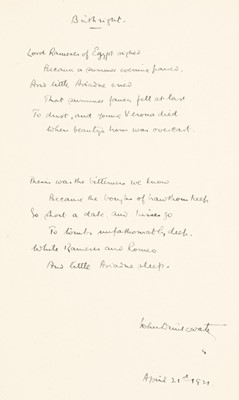 Birthright.
Lord Rameses of Egypt sighed
Because a summer evening passed;
And little Ariadne cried
That summer fancy fell at last
To dust; and young Verona died
When beauty's hour was overcast.
Theirs was the bitterness we know
Because the boughs of hawthorn keep
So short a date, and kisses go
To tombs unfathomably deep,
While Rameses and Romeo
And little Ariadne sleep.
John Drinkwater
April 21st 1921